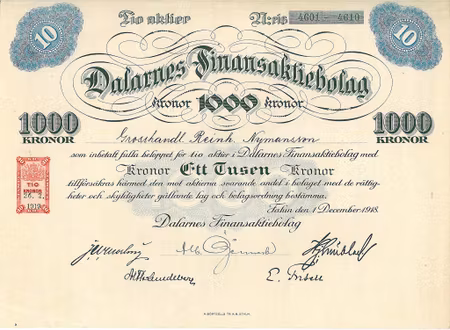 Tio aktier N:ris 4601 - 4610
10 10
Dalarnes Finansaktiebolag
kronor 1000 kronor
1000 KRONOR 1000 KRONOR
Grosshandl. Reinh. Nymansson
som inbetalt fulla beloppet för tio aktier i Dalarnes Finansaktiebolag med
Kronor Ett Tusen Kronor
tillförsäkras härmed den mot aktierna svarande andel i bolaget med de rättig-
heter och skyldigheter gällande lag och bolagsordning bestämma.
Falun den 1 December 1918.
Dalarnes Finansaktiebolag
TIO
1919